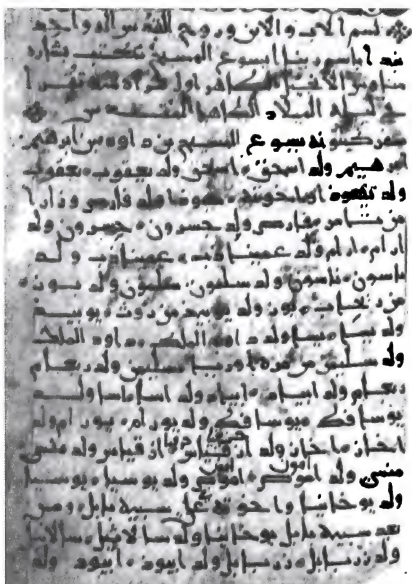 بسم الاب والابن وروح القدس اله واحد
نبدا باسم ربنا ايسوع المسيح نكتب بشاره
متاوس الانجيل الطاهر اول قراه منه تقرا
في ليله الميلاد
سفر كتاب تولد يسوع المسيح بن داود بن ابرهيم
ابرهيم ولد اسحق اسحق ولد يعقوب يعقوب
ولد يهوذا واخوته يهوذا ولد فارص وزارا
من تامر فارص ولد حسرون حسرون ولد
ارام ارام ولد عميناداب عميناداب ولد
ناسون ناسون ولد سلمون سلمون ولد
من باعوز ولد يوبيد من روث يوبيد
ولد يسا يسا ولد داود الملك داود الملك
ولد سليمن من اوريا سليمن ولد ربعام
ربعام ولد ابيا ابيا ولد اسا اسا ولد
يوسافط يوسافط ولد يورام يورام ولد
احاز احاز ولد حزقيا ولد منسى
منسى ولد امون ولد يوسيا يوسيا
ولد يوخانيا واخوته في سبية بابل ومن
بعد سبية بابل يوخانيا ولد سالاتيل سالاتيل
ولد زربابل زربابل ولد ابيود ابيود ولد